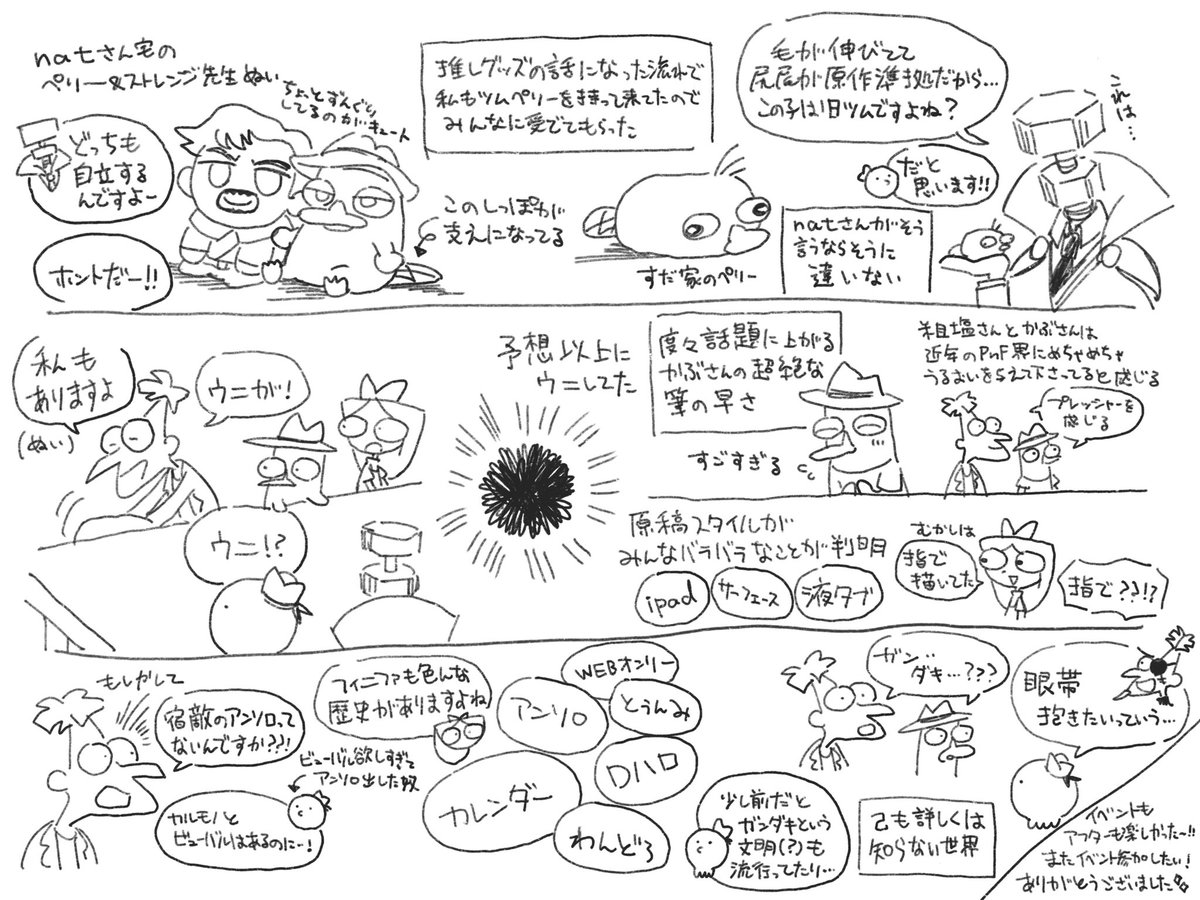 natさん宅の
ペリー&ストレンジ先生ぬい
ちょっとずんぐり
してるのがキュート
どっちも
自立する
んですよー
ホントだー!!
このしっぽが
支えになってる
推しグッズの話になった流れで
私もツムペリーを持って来てたので
みんなに愛でてもらった
すだ家のペリー
毛が伸びてて
尻尾が原作準拠だから…
この子は旧ツムですよね?
これは…
だと
思います!!
natさんがそう
言うならそうに
違いない
私も
ありますよ
(ぬい)
ウニが!
ウニ!?
予想以上に
ウニしてた
度々話題に上がる
かぶさんの超絶な
筆の早さ
すごすぎる
粗塩さんとかぶさんは
近年のPnF界にめちゃめちゃ
うるおいを与えて下さってると感じる
プレッシャーを
感じる
原稿スタイルが
みんなバラバラなことが判明
ipad
サーフェース
液タブ
むかしは
指で
描いてた
指で??!?
もしかして
宿敵のアンソロって
ないんですか??!
カルモノと
ビューバルはあるのにー!
ビューバル欲しすぎて
アンソロ出した奴
フィニファも色んな
歴史がありますよね
WEBオンリー
アンソロ
とうんみ
Dハロ
カレンダー
わんどろ
少し前だと
ガンダキという
文明(?)も
流行ってたり…
ガン…
ダキ…???
己も詳しくは
知らない世界
眼帯
抱きたいっていう…
イベントも
アフターも楽しかったー!!
またイベント参加したい!
ありがとうございました